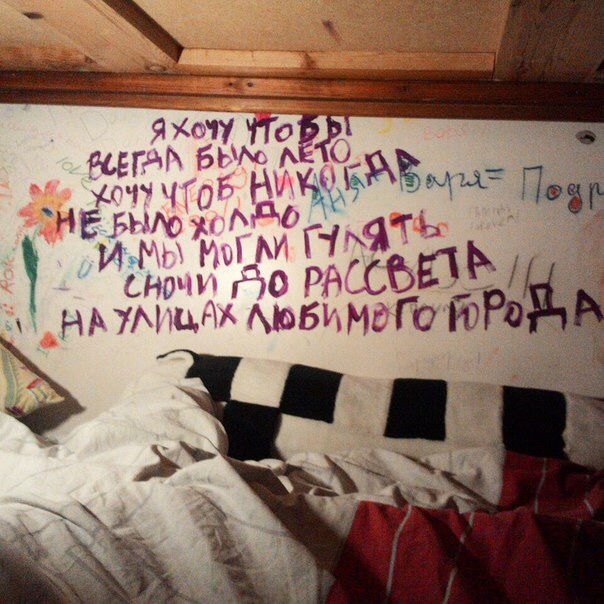 Я ХОЧУ ЧТОБЫ
ВСЕГДА БЫЛО ЛЕТО
ХОЧУ ЧТОБ НИКОГДА
Аня Варя =
НЕ БЫЛО ХОЛДО
И МЫ МОГЛИ ГУЛЯТЬ
СНОЧИ ДО РАССВЕТА
НА УЛИЦАХ ЛЮБИМОГО ГОРОДА